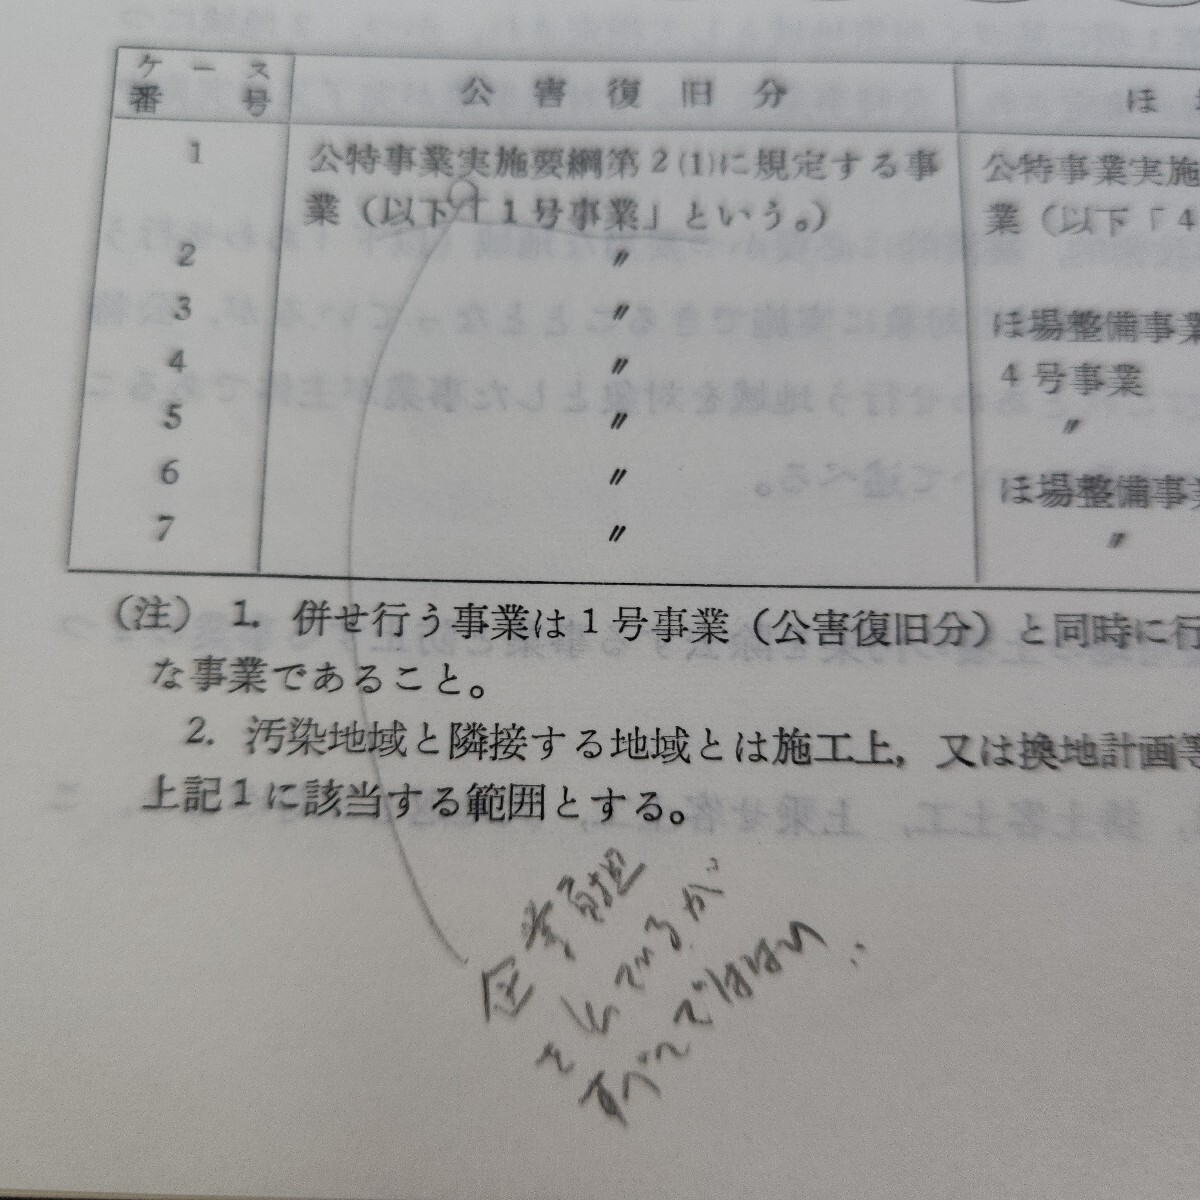 ケース番号 公害復旧分 ほ
1 公特事業実施要綱第2(1)に規定する事 公特事業実施
業(以下「1号事業」という。) 業(以下「4
2 〃
3 〃 ほ場整備事業
4 〃 4号事業
5 〃 〃
6 〃 ほ場整備事業
7 〃 〃
(注) 1. 併せ行う事業は1号事業(公害復旧分)と同時に行
な事業であること。
2. 汚染地域と隣接する地域とは施工上,又は換地計画等
上記1に該当する範囲とする。
企業負担
をしているが
すべてではない